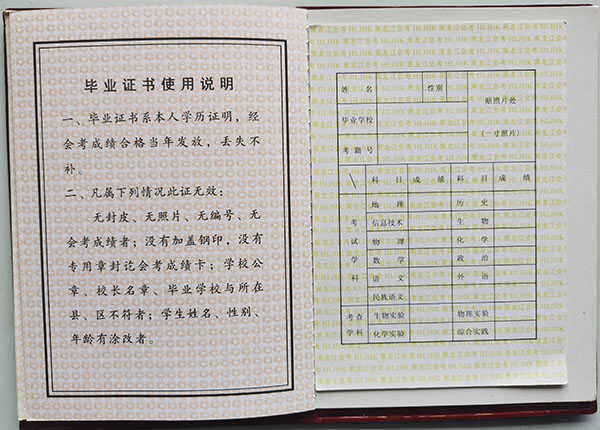 毕业证书使用说明
一、毕业证书系本人学历证明，经
会考成绩合格当年发放，丢失不
补。
二、凡属下列情况此证无效：
无封皮、无照片、无编号、无
会考成绩者；没有加盖钢印，没有
专用章封讫会考成绩卡；学校公
章、校长名章、毕业学校与所在
县、区不符者；学生姓名、性别、
年龄有涂改者。
姓 名 性别
贴照片处
毕业学校
（一寸照片）
考籍号
科目 成绩 科目 成绩
考试学科
地理 历史
信息技术 生物
物理 化学
数学 政治
语文 外语
民族语文
考查学科
生物实验 物理实验
化学实验 综合实践